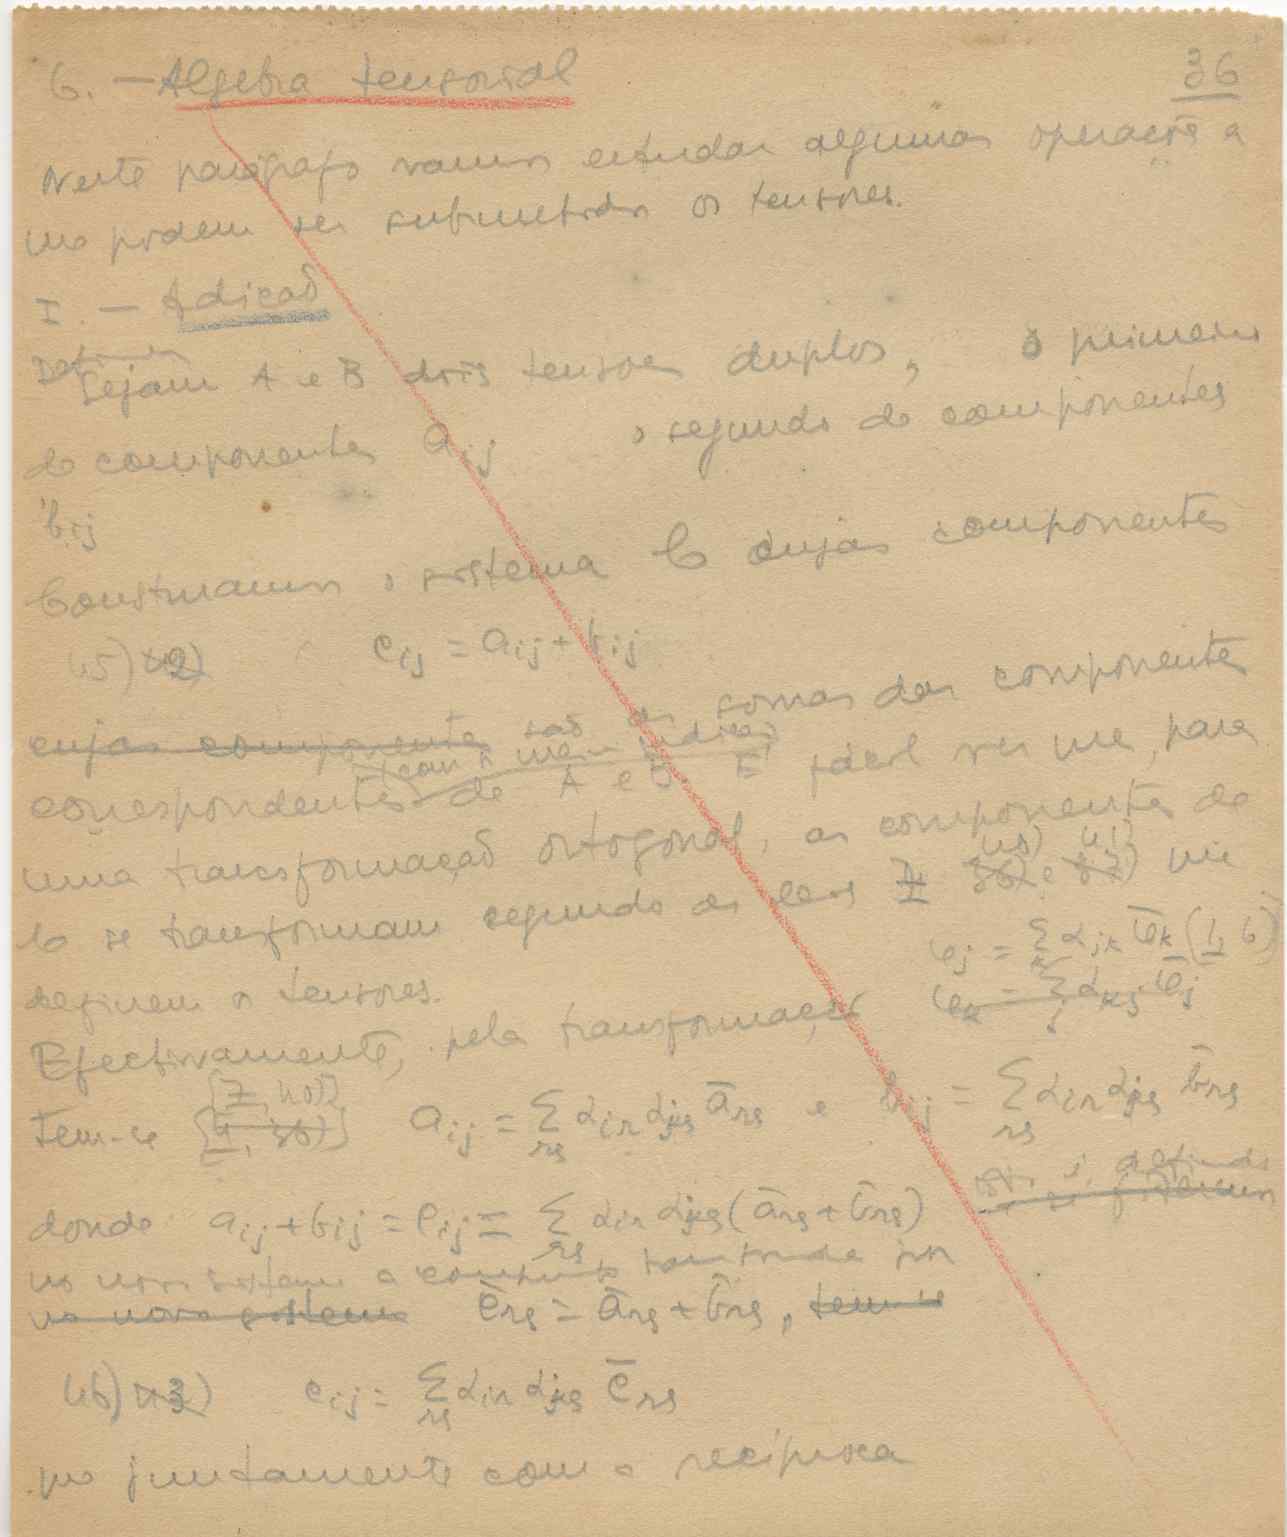 6. — Algebra tensorial
36
Neste parágrafo vamos estudar algumas operações a
que podem ser submetidos os tensores.
I. — Adição
Definição
Sejam A e B dois tensores duplos, o primeiro
de componentes a_ij o segundo de componentes
b_ij
Construamos o sistema C cujas componentes
45) 42) c_ij = a_ij + b_ij
cujas componentes são as somas das componentes
com os mesmos índices
correspondentes de A e B. É fácil ver que, para
uma transformação ortogonal, as componentes de
40) 41)
C se transformam segundo as leis 36) e 37) que
definem os tensores.
e_j = Σ_k α_jk ē_k (1, 6)
e_k = Σ_j α_kj ē_j
Efectivamente, pela transformação
[7, 40)]
tem-se [4, 36)] a_ij = Σ_rs α_ir α_js ā_rs e b_ij = Σ_rs α_ir α_js b̄_rs
isto é, definindo
donde a_ij + b_ij = c_ij = Σ_rs α_ir α_js (ā_rs + b̄_rs)
no novo sistema a por
no novo sistema c̄_rs = ā_rs + b̄_rs, tem-se
46) 43) c_ij = Σ_rs α_ir α_js c̄_rs
que juntamente com a recíproca